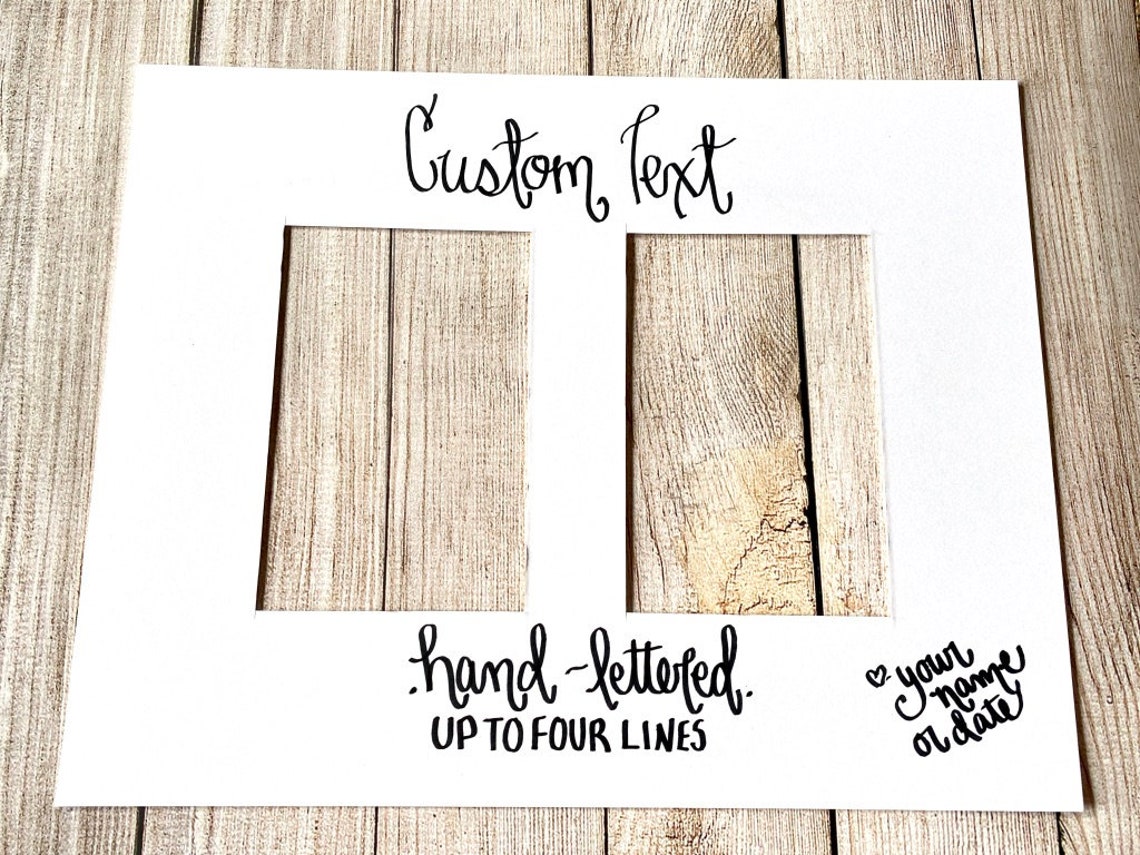 Custom Text
.hand-lettered.
UP TO FOUR LINES
♡ your
name
or date